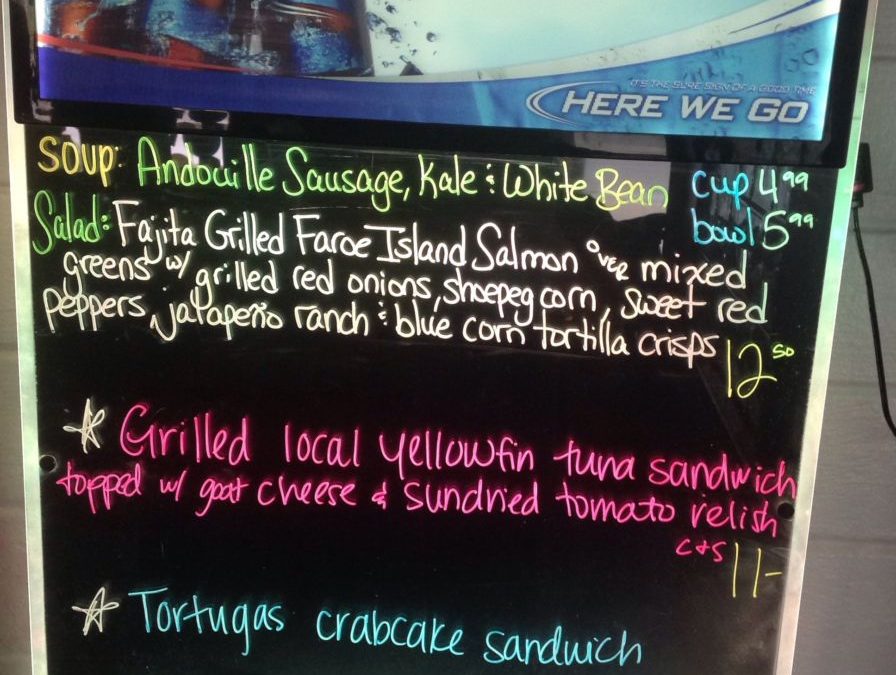 IT'S THE SURE SIGN OF A GOOD TIME
HERE WE GO
Soup: Andouille Sausage, Kale & White Bean cup 4.99
bowl 5.99
Salad: Fajita Grilled Faroe Island Salmon over mixed
greens w/ grilled red onions, shoepeg corn, sweet red
peppers, jalapeño ranch & blue corn tortilla crisps 12.50
Grilled local yellowfin tuna sandwich
topped w/ goat cheese & sundried tomato relish
c+s 11-
Tortugas crabcake sandwich